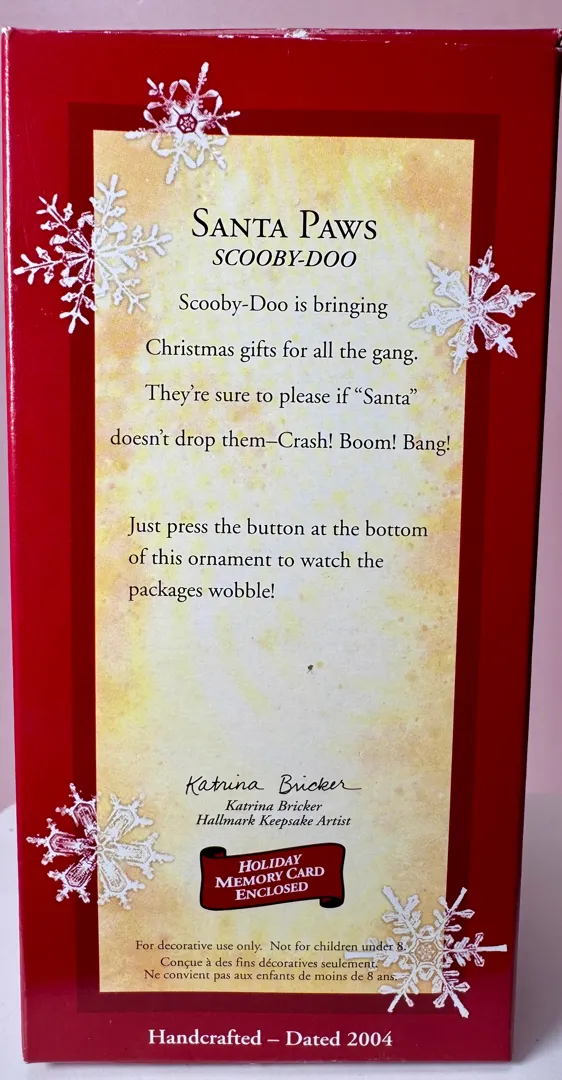 Santa Paws
SCOOBY-DOO
Scooby-Doo is bringing
Christmas gifts for all the gang.
They're sure to please if “Santa”
doesn't drop them–Crash! Boom! Bang!
Just press the button at the bottom
of this ornament to watch the
packages wobble!
Katrina Bricker
Katrina Bricker
Hallmark Keepsake Artist
HOLIDAY
MEMORY CARD
ENCLOSED
For decorative use only. Not for children under 8.
Conçue à des fins décoratives seulement.
Ne convient pas aux enfants de moins de 8 ans.
Handcrafted – Dated 2004